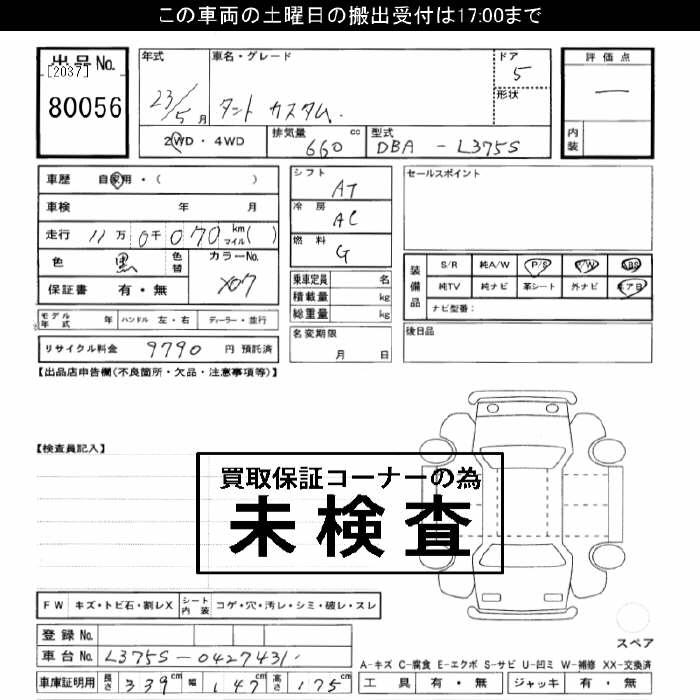 この車両の土曜日の搬出受付は17:00まで
出品No.
[2037]
80056
年式 23/5月
車名・グレード タント カスタム.
ドア 5
形状
評価点 ー
内装
2WD・4WD
排気量 660 cc
型式 DBA - L375S
車歴 自家用・( )
車検 年 月
走行 11万 0千 070 km マイル( )
色 黒 色替 カラーNo. X07
保証書 有・無
モデル年式 年 ハンドル 左・右 ディーラー・並行
リサイクル料金 9790 円 預託済
シフト AT
冷房 AC
燃料 G
乗車定員 名
積載量 kg
総重量 kg
名変期限 月 日
セールスポイント
装備品
S/R 純A/W P/S P/W ABS
純TV 純ナビ 革シート 外ナビ エアB
ナビ型番:
後日品
【出品店申告欄(不良箇所・欠品・注意事項等)】
【検査員記入】
買取保証コーナーの為
未検査
FW キズ・トビ石・割レX シート内装 コゲ・穴・汚レ・シミ・破レ・スレ
登録No.
車台No. L375S-0427431.
車庫証明用 長さ 339cm 幅 147cm 高さ 175cm
スペア
A-キズ C-腐食 E-エクボ S-サビ U-凹ミ W-補修 XX-交換済
工具 有・無 ジャッキ 有・無